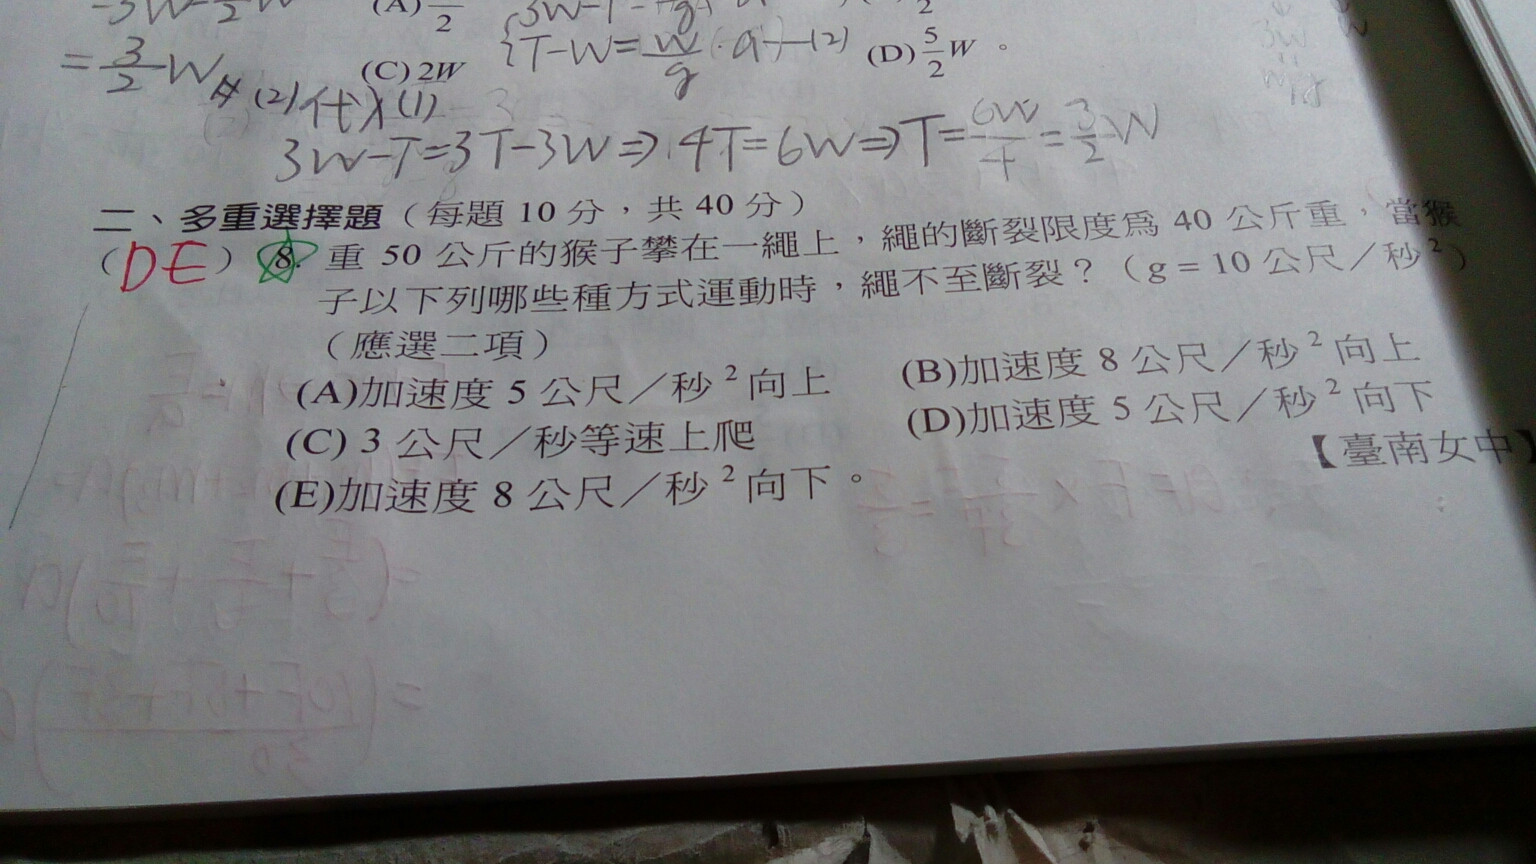 (A) 2
= 3/2 W (C) 2W { T-W = w/g · a —(2) (D) 5/2 W 。
(2)代入(1)
3W-T=3T-3W⇒4T=6W⇒T=6W/4=3/2 W
二、多重選擇題（每題 10 分，共 40 分）
（DE）8. 重 50 公斤的猴子攀在一繩上，繩的斷裂限度為 40 公斤重，當猴
子以下列哪些種方式運動時，繩不至斷裂？（g = 10 公尺／秒²）
（應選二項）
(A)加速度 5 公尺／秒²向上 (B)加速度 8 公尺／秒²向上
(C) 3 公尺／秒等速上爬 (D)加速度 5 公尺／秒²向下
(E)加速度 8 公尺／秒²向下。 【臺南女中】